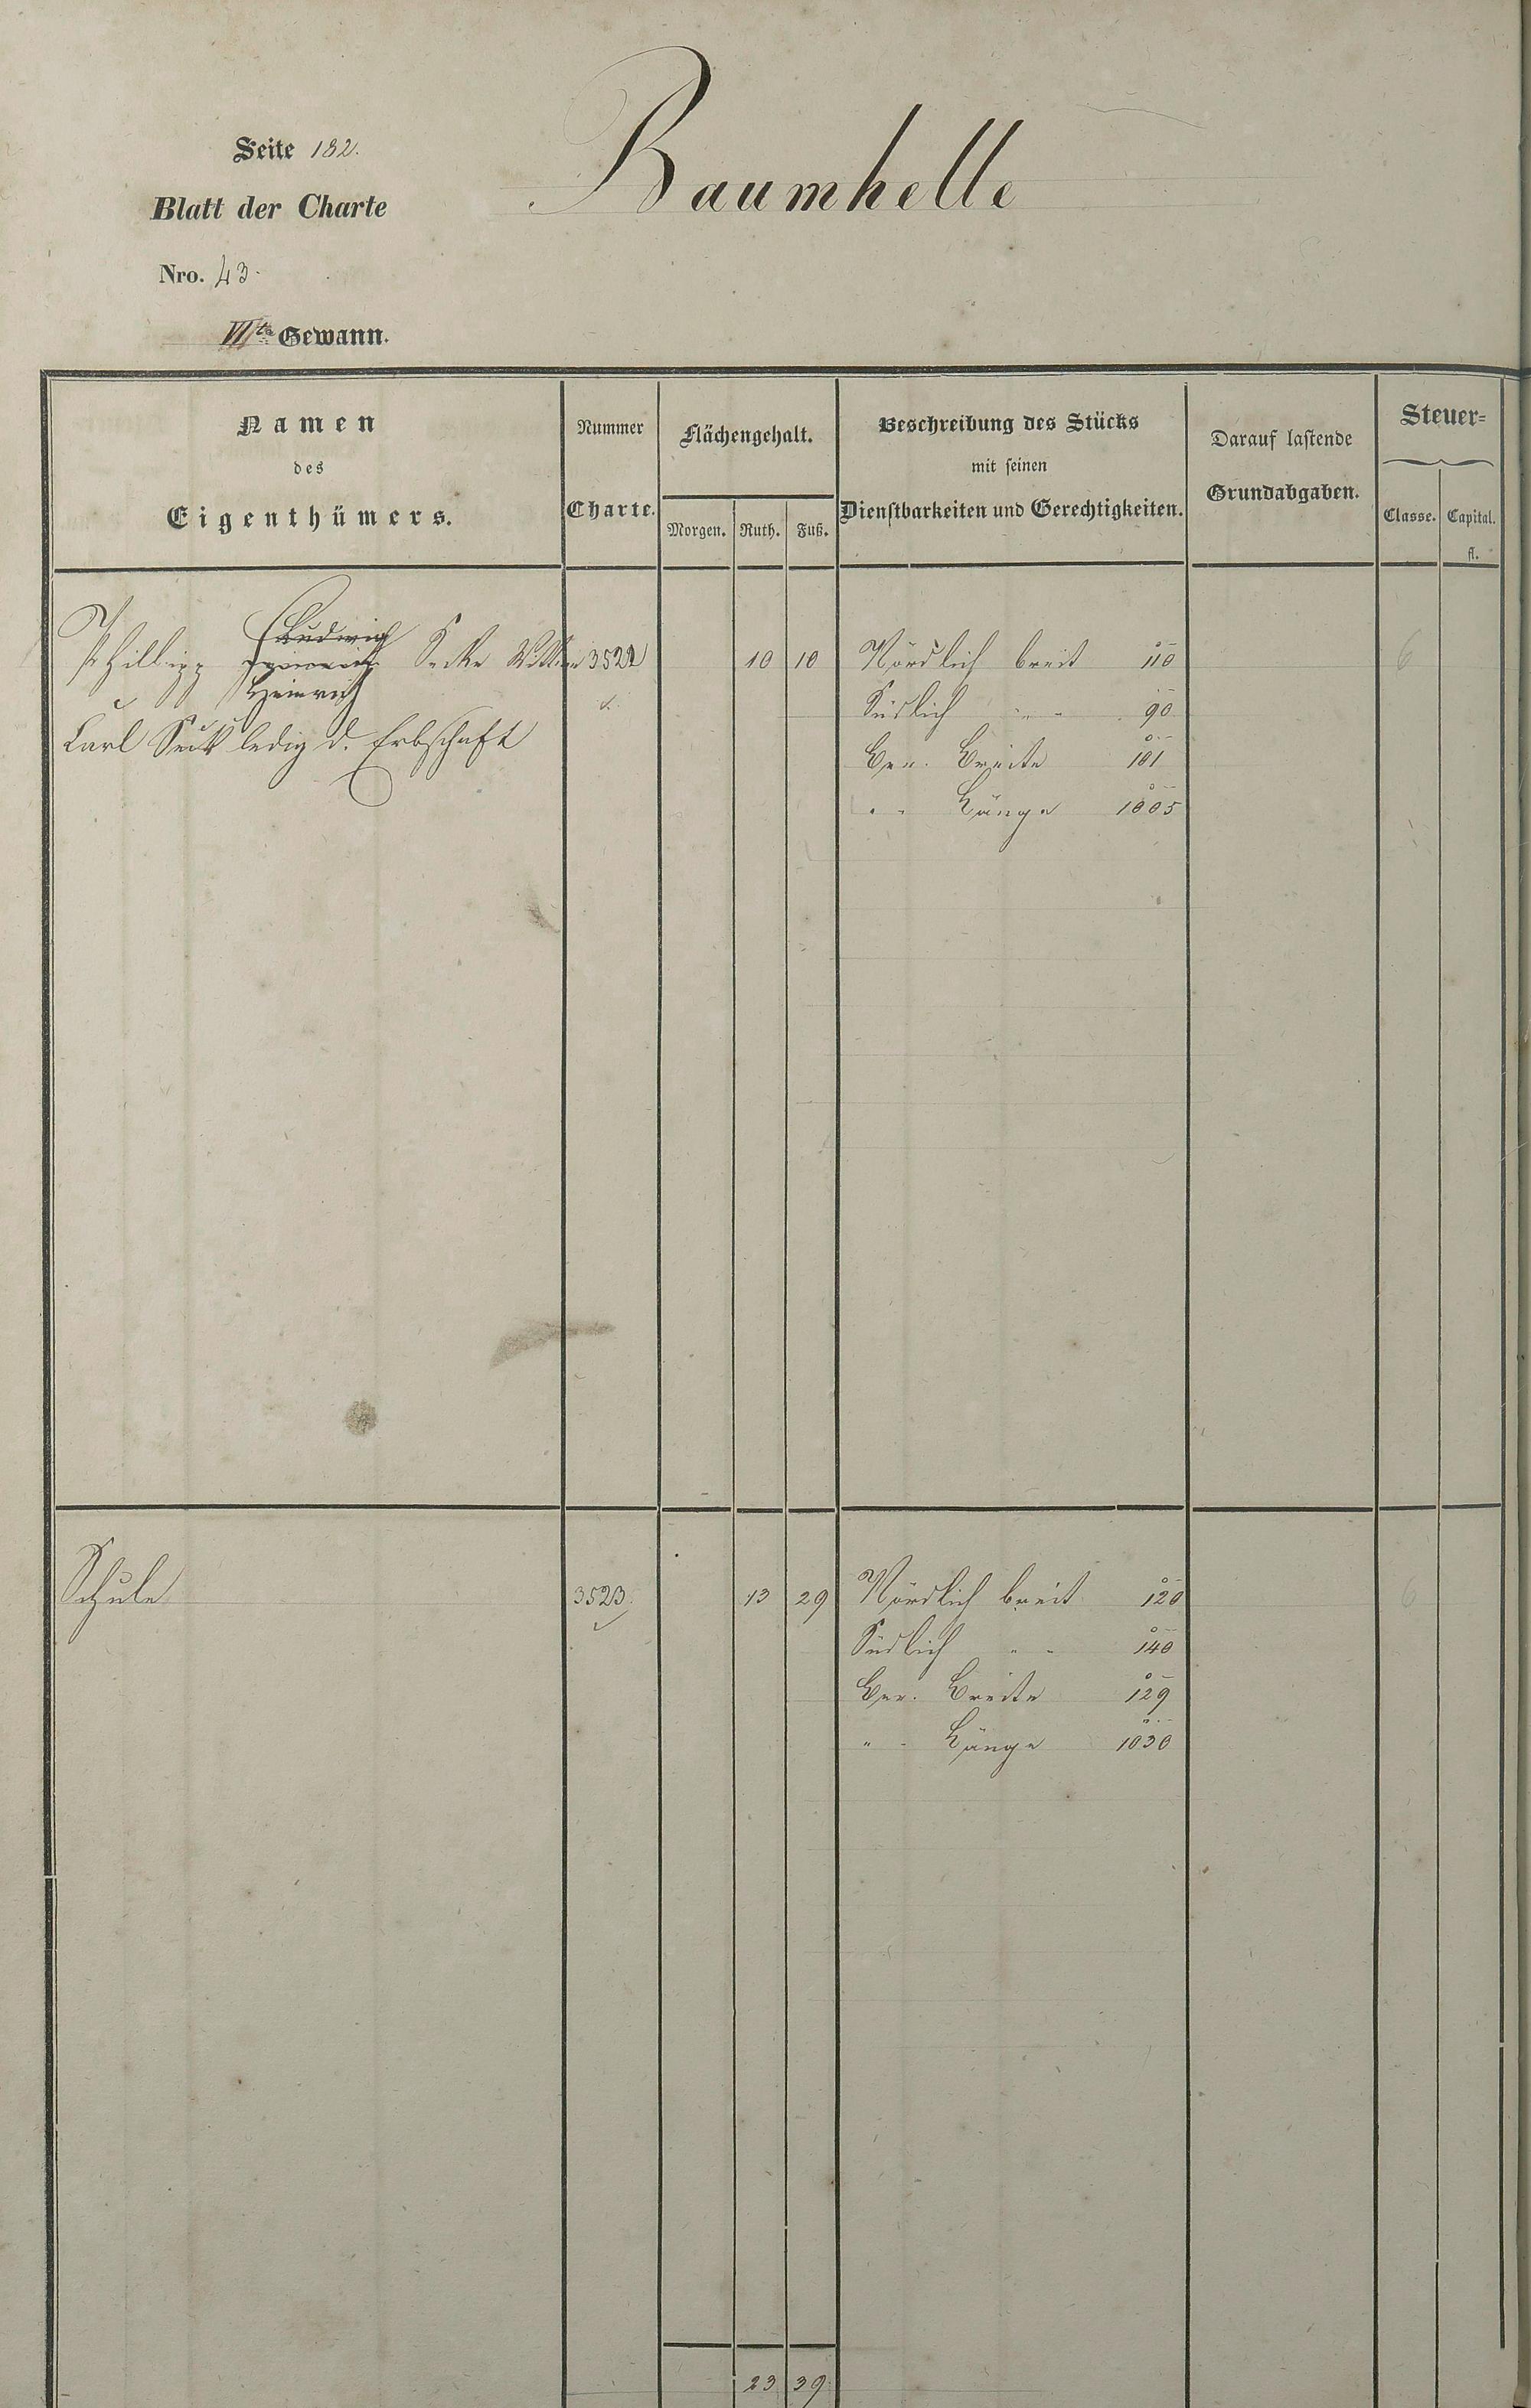 Seite 182.
Baumhelle
Blatt der Charte
Nro. 43.
VIIte Gewann.
Namen
des
Eigenthümers.
Nummer
Charte.
Flächengehalt.
Morgen. Ruth. Fuß.
Beschreibung des Stücks
mit seinen
Dienstbarkeiten und Gerechtigkeiten.
Darauf lastende
Grundabgaben.
Steuer=
Classe. Capital.
fl.
Ludwig
Phillipp Seck Wittwe 3522 10 10 Nördlich breit 110 6
Heinrich
Südlich " " 90
Carl Seck ledig d. Erbschaft
Ber. Breite 101
" " Länge 1005
Schule 3523. 13 29 Nördlich breit 120 6
Südlich " " 140
Ber. Breite 129
" " Länge 1030
23 39